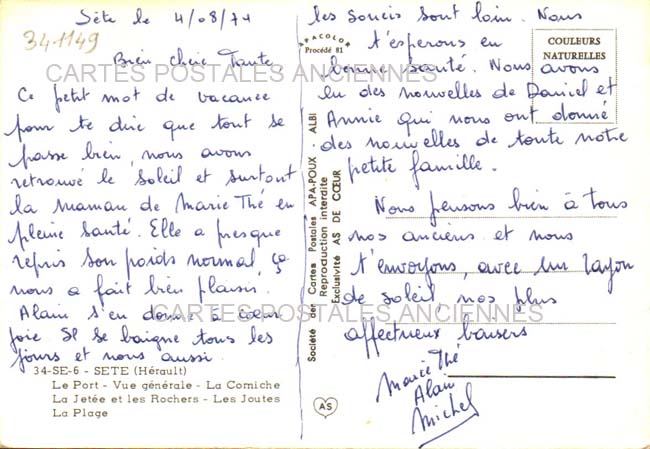 Sète le 4/08/74
34-1149
Bien chère Tante
CARTES POSTALES ANCIENNES
Ce petit mot de vacance
pour te dire que tout se
passe bien, nous avons
retrouvé le soleil et surtout
la maman de Marie Thé en
pleine santé. Elle a presque
repris son poids normal, ça
nous a fait bien plaisir.
Alain s'en donne à cœur
joie Il se baigne tous les
jours et nous aussi.
34-SE-6 - SETE (Hérault)
Le Port - Vue générale - La Corniche
La Jetée et les Rochers - Les Joutes
La Plage
APACOLOR
Procédé 81
Société des Cartes Postales APA-POUX - ALBI
Reproduction interdite
Exclusivité AS DE CŒUR
AS
COULEURS
NATURELLES
les soucis sont loin. Nous
t'esperons en
bonne santé. Nous avons
eu des nouvelles de Daniel et
Annie qui nous ont donné
des nouvelles de toute notre
petite famille.
Nous pensons bien à tous
nos anciens et nous
t'envoyons, avec un rayon
de soleil, nos plus
CARTES POSTALES ANCIENNES
affectueux baisers
Marie Thé
Alain
Michel